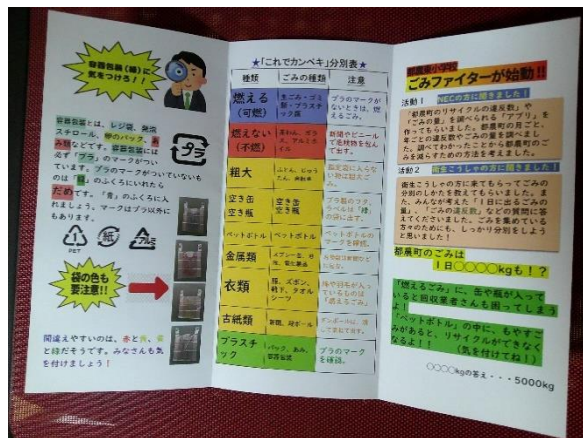 容器包装(緑)に
気をつけろ!!
容器包装とは、レジ袋、発泡
スチロール、卵のパック、あ
み類などです。容器包装には
必ず「プラ」のマークがつい
ています。プラマークがついていないも
のは「緑」のふくろにいれたら
だめです。「青」のふくろに入
れましょう。マークはプラ以外に
もあります。
プラ
PET
紙
アルミ
袋の色も
要注意!!
間違えやすいのは、赤と青、黄
と緑だそうです。みなさんも気
を付けましょう!
★「これでカンペキ」分別表★
種類 ごみの種類 注意
燃える
(可燃)
生ごみ・ゴミ
類・プラスチ
ック類
プラのマークが
ないときは、燃
えるごみ。
燃えない
(不燃)
茶わん、ガラ
ス、アルミホ
イル
新聞やビニール
で危険物を包ん
で出す。
粗大
ふとん、じゅう
たん、自転車
空き缶
空き瓶
空き缶
空き瓶
プラ製のフタ、
ラベルは「緑」
の袋に出す。
ペットボトル ペットボトル
ペットボトルの
マークを確認。
金属類
衣類
服、ズボン、
靴下、タオル
シーツ
古紙類
新聞、段ボール
プラスチ
ック
パック、あみ、
容器包装
プラのマーク
を確認。
都農東小学校
ごみファイターが始動!!
活動1 NECの方に聞きました!
「都農町のリサイクルの違反数」や
「ごみの量」を調べられる「アプリ」を
作ってもらいました。都農町の月ごと、
年ごとの違反数やごみの量を調べまし
た。調べてわかったことから都農町のご
みを減らすための方法を考えました。
活動2 衛生こうしゃの方に聞きました!
衛生こうしゃの方に来てもらってごみの
分別のしかたを教えてもらいました。ま
た、みんなが考えた「1日に出るごみの
量」、「ごみの違反数」などの質問に答
えてくださいました。ごみを集めている
方々のためにも、しっかり分別をしよう
と思いました!
都農町のごみは
1日○○○○kgも!?
「燃えるごみ」に、缶や瓶が入って
いると回収業者さんも困ってしまう
よ!
「ペットボトル」の中に、もやすご
みがあると、リサイクルができなく
なるよ!! (気を付けてね!)
○○○○kgの答え・・・5000kg